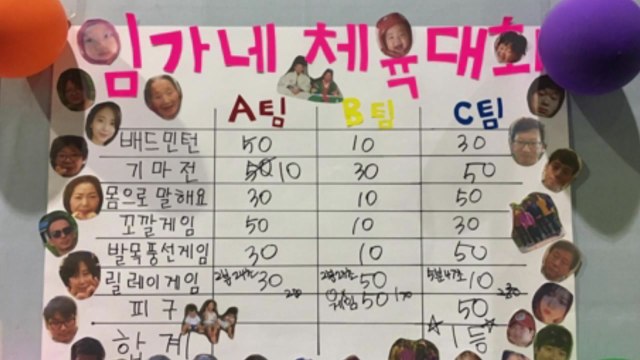 김가네 체육대회
A팀 B팀 C팀
배드민턴 50 10 30
기마전 50 10 30 50
몸으로 말해요 30 10 50
꼬깔게임 50 10 30
발목풍선게임 30 10 50
릴레이게임 30 50 10
피구 50 50
합계 1등